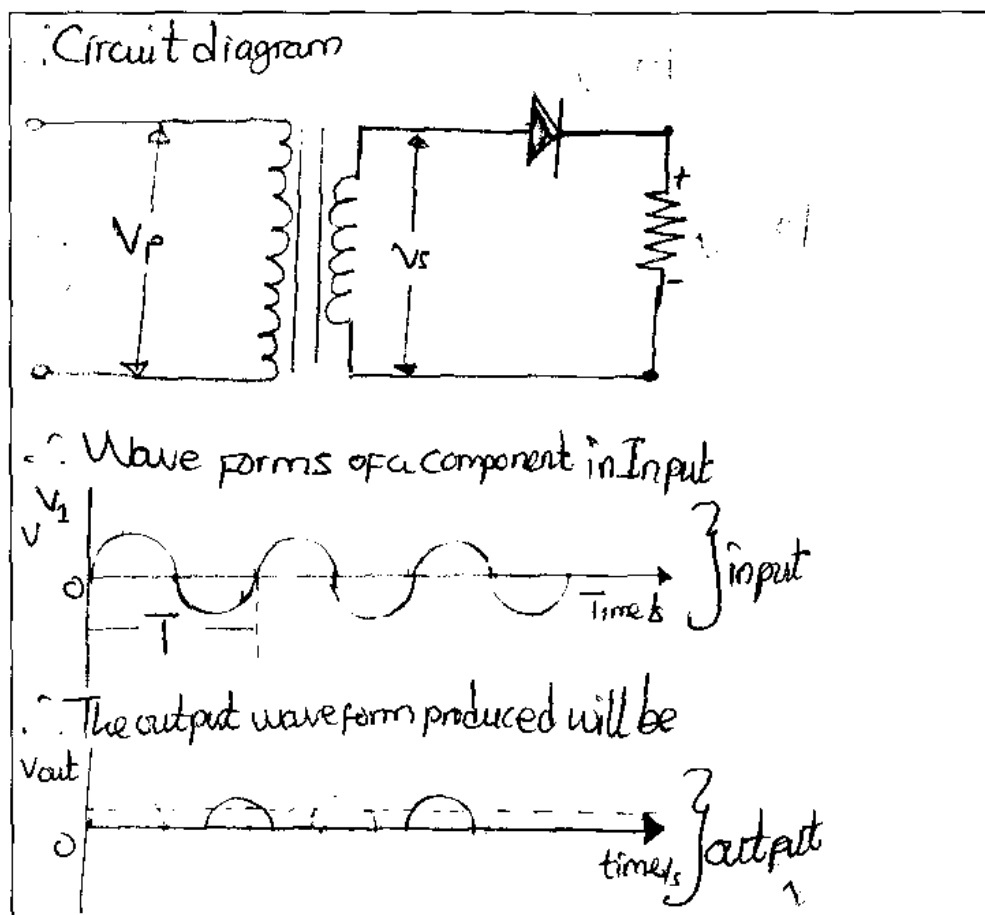 ∴ Circuit diagram
Vp
Vs
+
-
∴ Wave forms of a component in Input
V V1
0
T
Time/s
input
∴ The output waveform produced will be
Vout
0
time/s
output